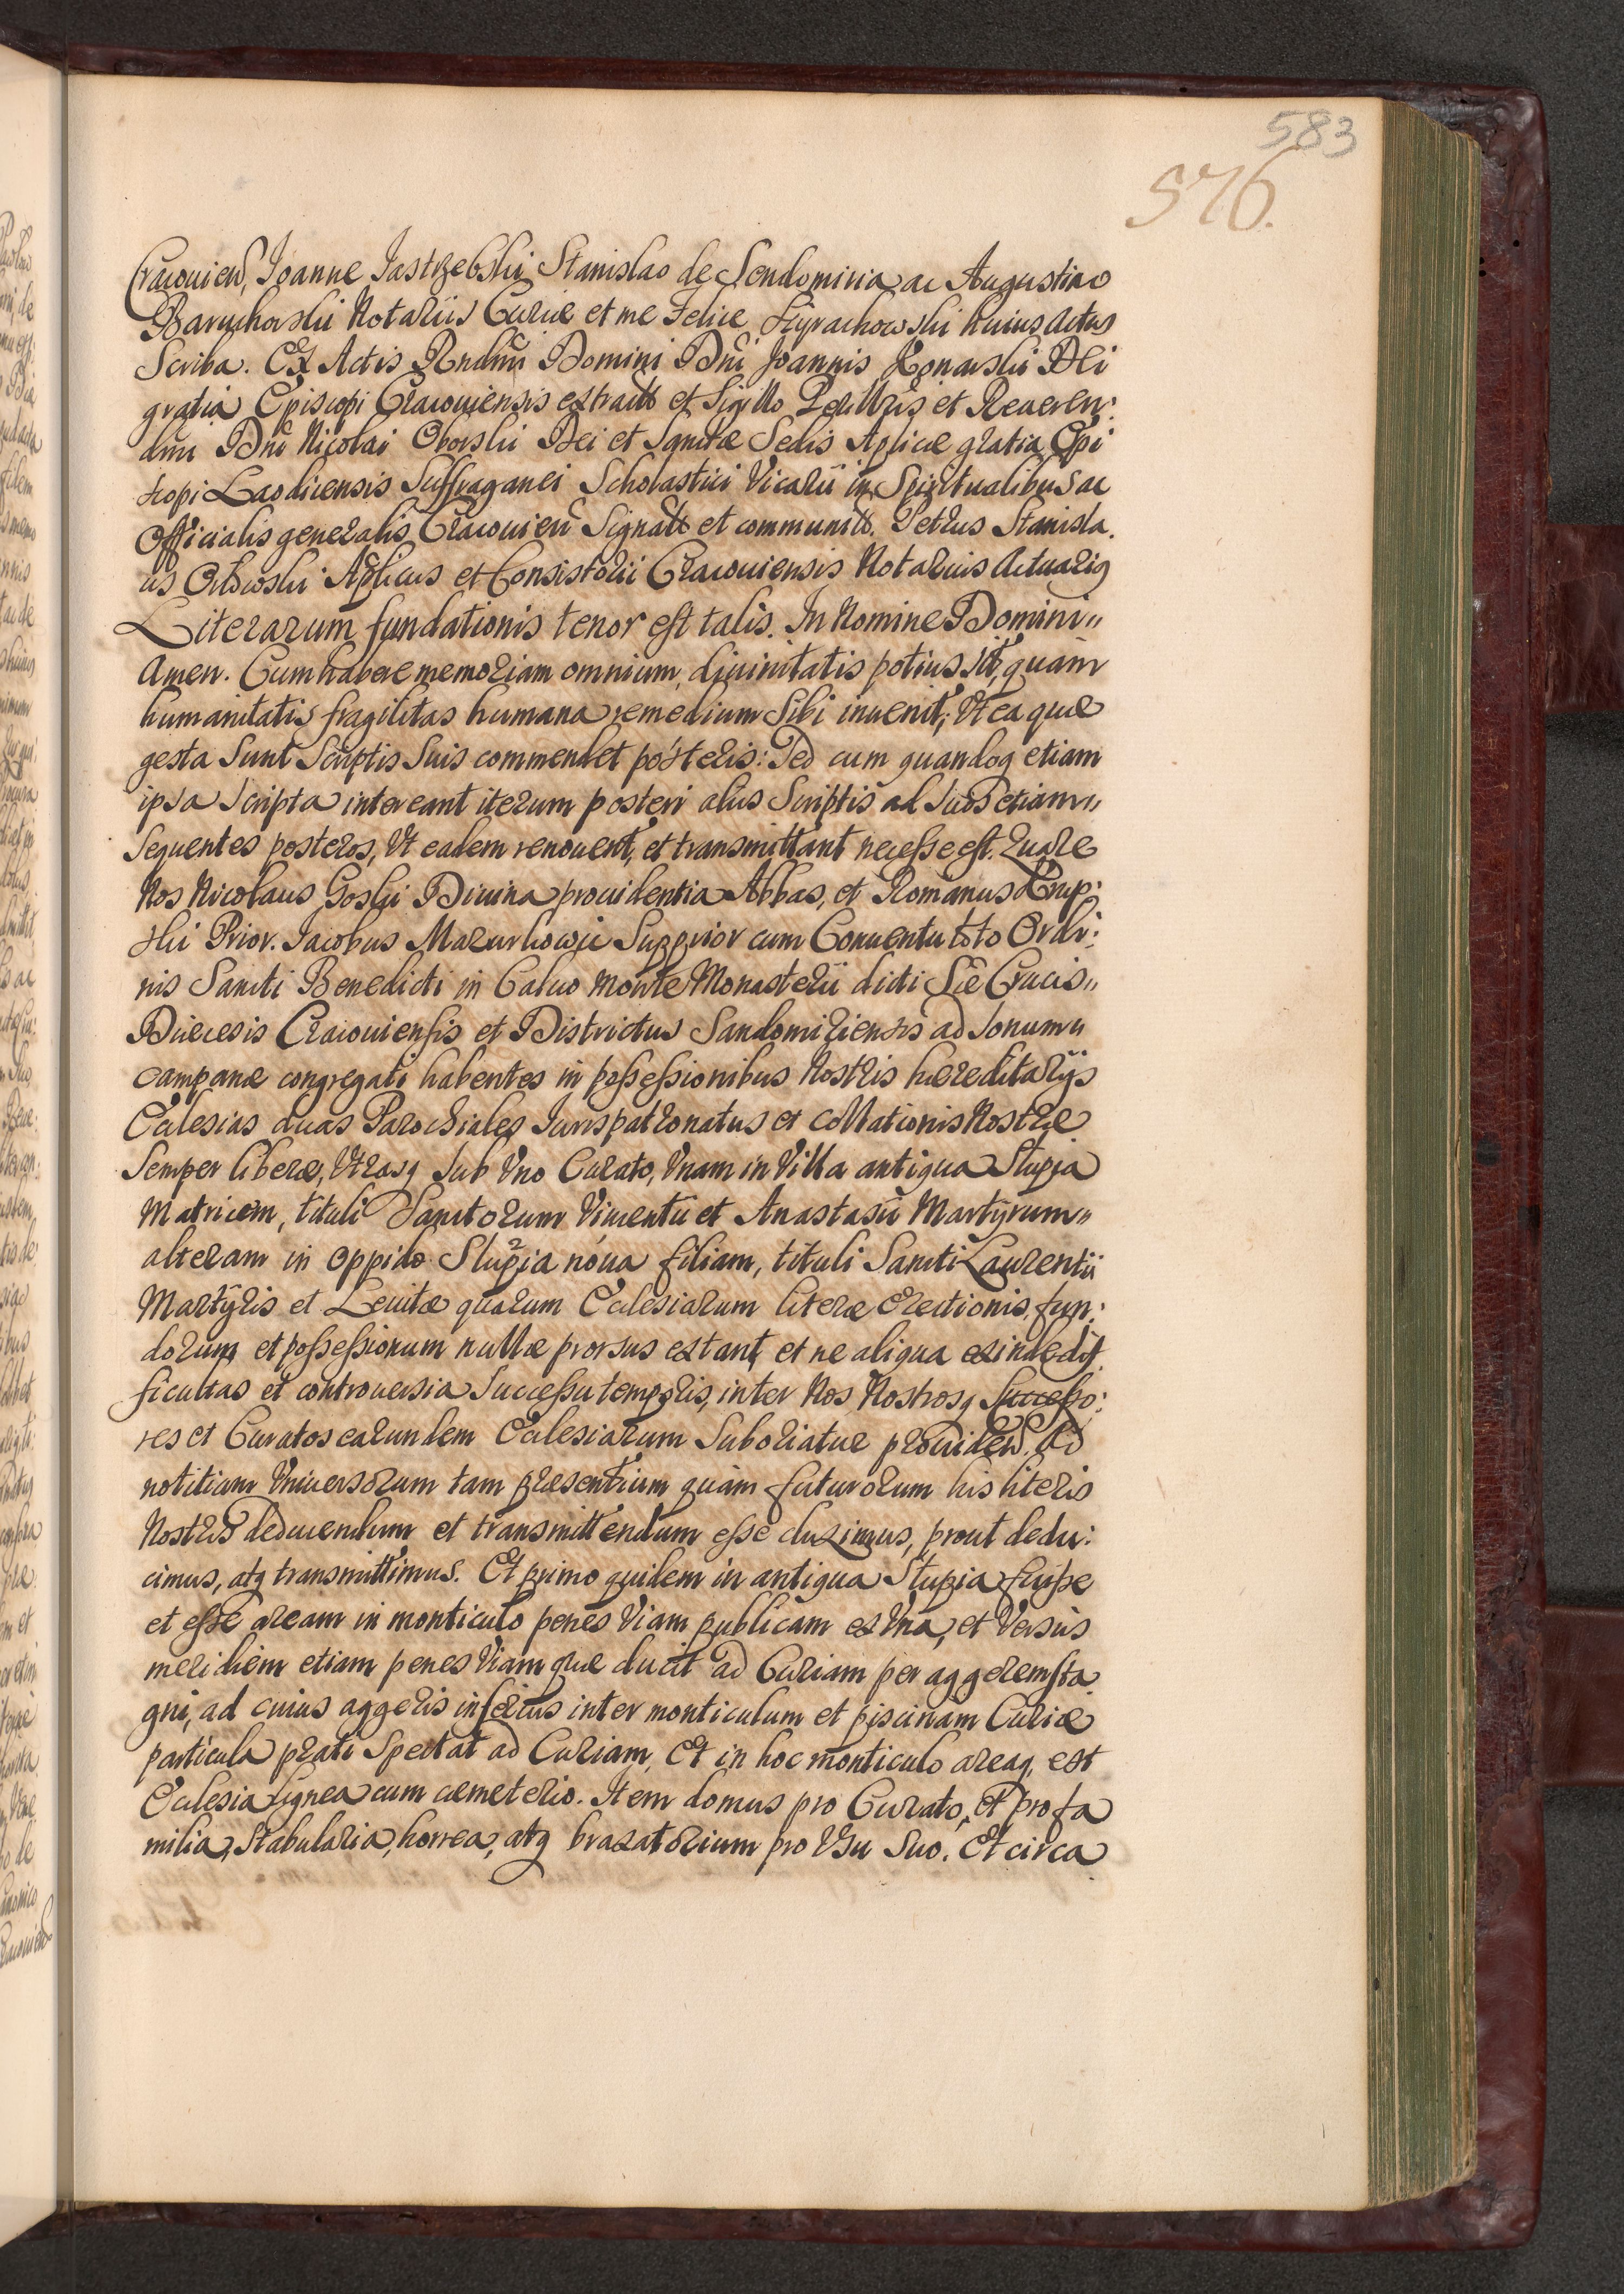 583
576.
Cracovien, Joanne Jastrzebski Stanislao de Sendomiria ac Augustino
Baruchowski Notariis Curiæ et me Felice Ligrachowski huius Actus
Scriba. Ex Actis Rndmi Domini Dni Joannis Konarski Dei
gratia Episcopi Cracoviensis extractt et Sigillo Perillris et Reveren:
dmi Dni Nicolai Oborski Dei et Sanctæ Sedis Aplicæ gratia Epi
scopi Laodicensis Suffraganei Scholastici Vicarii in Spiritualibus ac
Officialis generalis Cracovien Signatt et communitt. Petrus Stanisla.
us Orlowski Aplicus et Consistorii Cracoviensis Notarius Actuariq
Literarum fundationis tenor est talis. In Nomine Domini"
Amen. Cum habere memoriam omnium, divinitatis potius sit, quam
humanitatis fragilitas humana remedium Sibi invenit, Vt ea quæ
gesta Sunt Scriptis Suis commendet posteris: Sed cum quandoq etiam
ipsa Scripta intereant iterum posteri aliis Scriptis ad Suos etiam"
Sequentes posteros, Vt eadem renovent, et transmittant necesse est. Quare
Nos Nicolaus Goski Divina providentia Abbas, et Romanus Krup:
ski Prior. Jacobus Mazurkowic Supprior cum Conventu toto Ordi:
nis Sancti Benedicti in Calvo Monte Monasterii dicti Sæ Crucis"
Diæcesis Cracoviensis et Districtus Sandomiriensis ad Sonum"
campanæ congregati habentes in possessionibus Nostris hæreditarijs
Ecclesias duas Parochiales Jurispatronatus et Collationis Nostræ
Semper liberæ, Vtrasq Sub Vno Curato, Vnam in Villa antiqua Slupia
Matricem, tituli Sanctorum Vincentii et Anastasii Martyrum"
alteram in Oppido Slupia nova filiam, tituli Sancti Laurentii
Martyris et Levitæ quarum Ecclesiarum literæ Erectionis, fun:
dorum et possessionum nullæ prorsus extant, et ne aliqua exinde dif
ficultas et controversia Successu temporis, inter Nos Nostrosq Successo:
res et Curatos earundem Ecclesiarum Suboriatur providen. Ad
notitiam Vniversorum tam præsentium quàm futurorum his literis
Nostris deducendum et transmittendum esse duximus, prout dedu:
cimus, atq transmittimus. Et primo quidem in antiqua Slupia fuisse
et esse aream in monticulo penes Viam publicam ex Vna, et Versus
meridiem etiam penes Viam quæ ducit ad Curiam per aggerem sta
gni, ad cuius aggeris inferius inter monticulum et piscinam Curiæ
particula prati Spectat ad Curiam, Et in hoc monticulo areaq, est
Ecclesia lignea cum cæmeterio. Item domus pro Curato, Et pro fa
milia, Stabularia, horrea, atq braxatorium pro Vsu Suo. Et circa